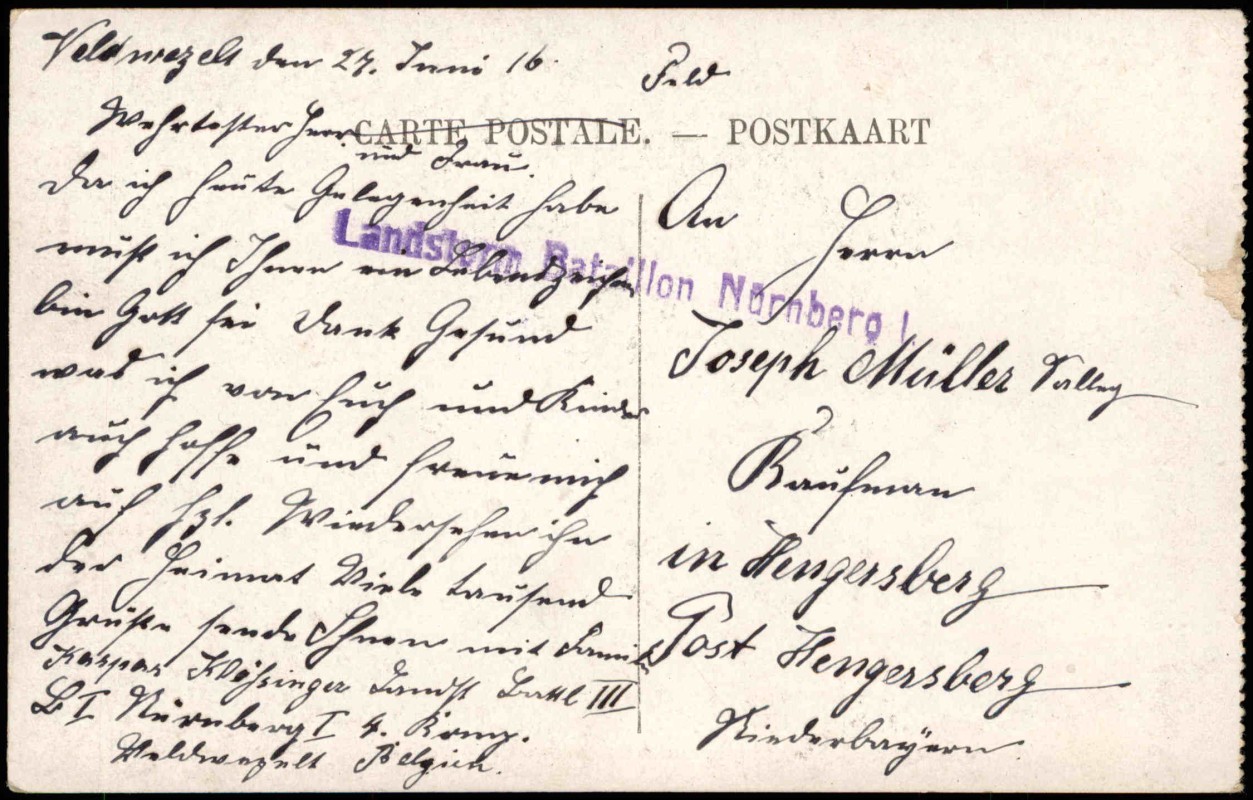 Veldwezelt den 27. Juni 16.
Feld
CARTE POSTALE. — POSTKAART
Wehrtester Herr
und Frau.
Da ich heute Gelegenheit habe
muß ich Ihnen ein Lebendzeichen
bin Gott sei Dank Gesund
was ich von Euch und Kinder
auch hoffe und freue mich
auf hzl. Wiedersehen ihn
der Heimat Viele tausend
Grüße sende Ihnen mit Famile
Kaspar Klößinger Landst Batl III
B I Nürnberg I 4. Komp.
Veldwezelt Belgien.
Landsturm Bataillon Nürnberg I
An Herrn
Joseph Müller
Kaufman
in Hengersberg
Post Hengersberg
Niederbayern